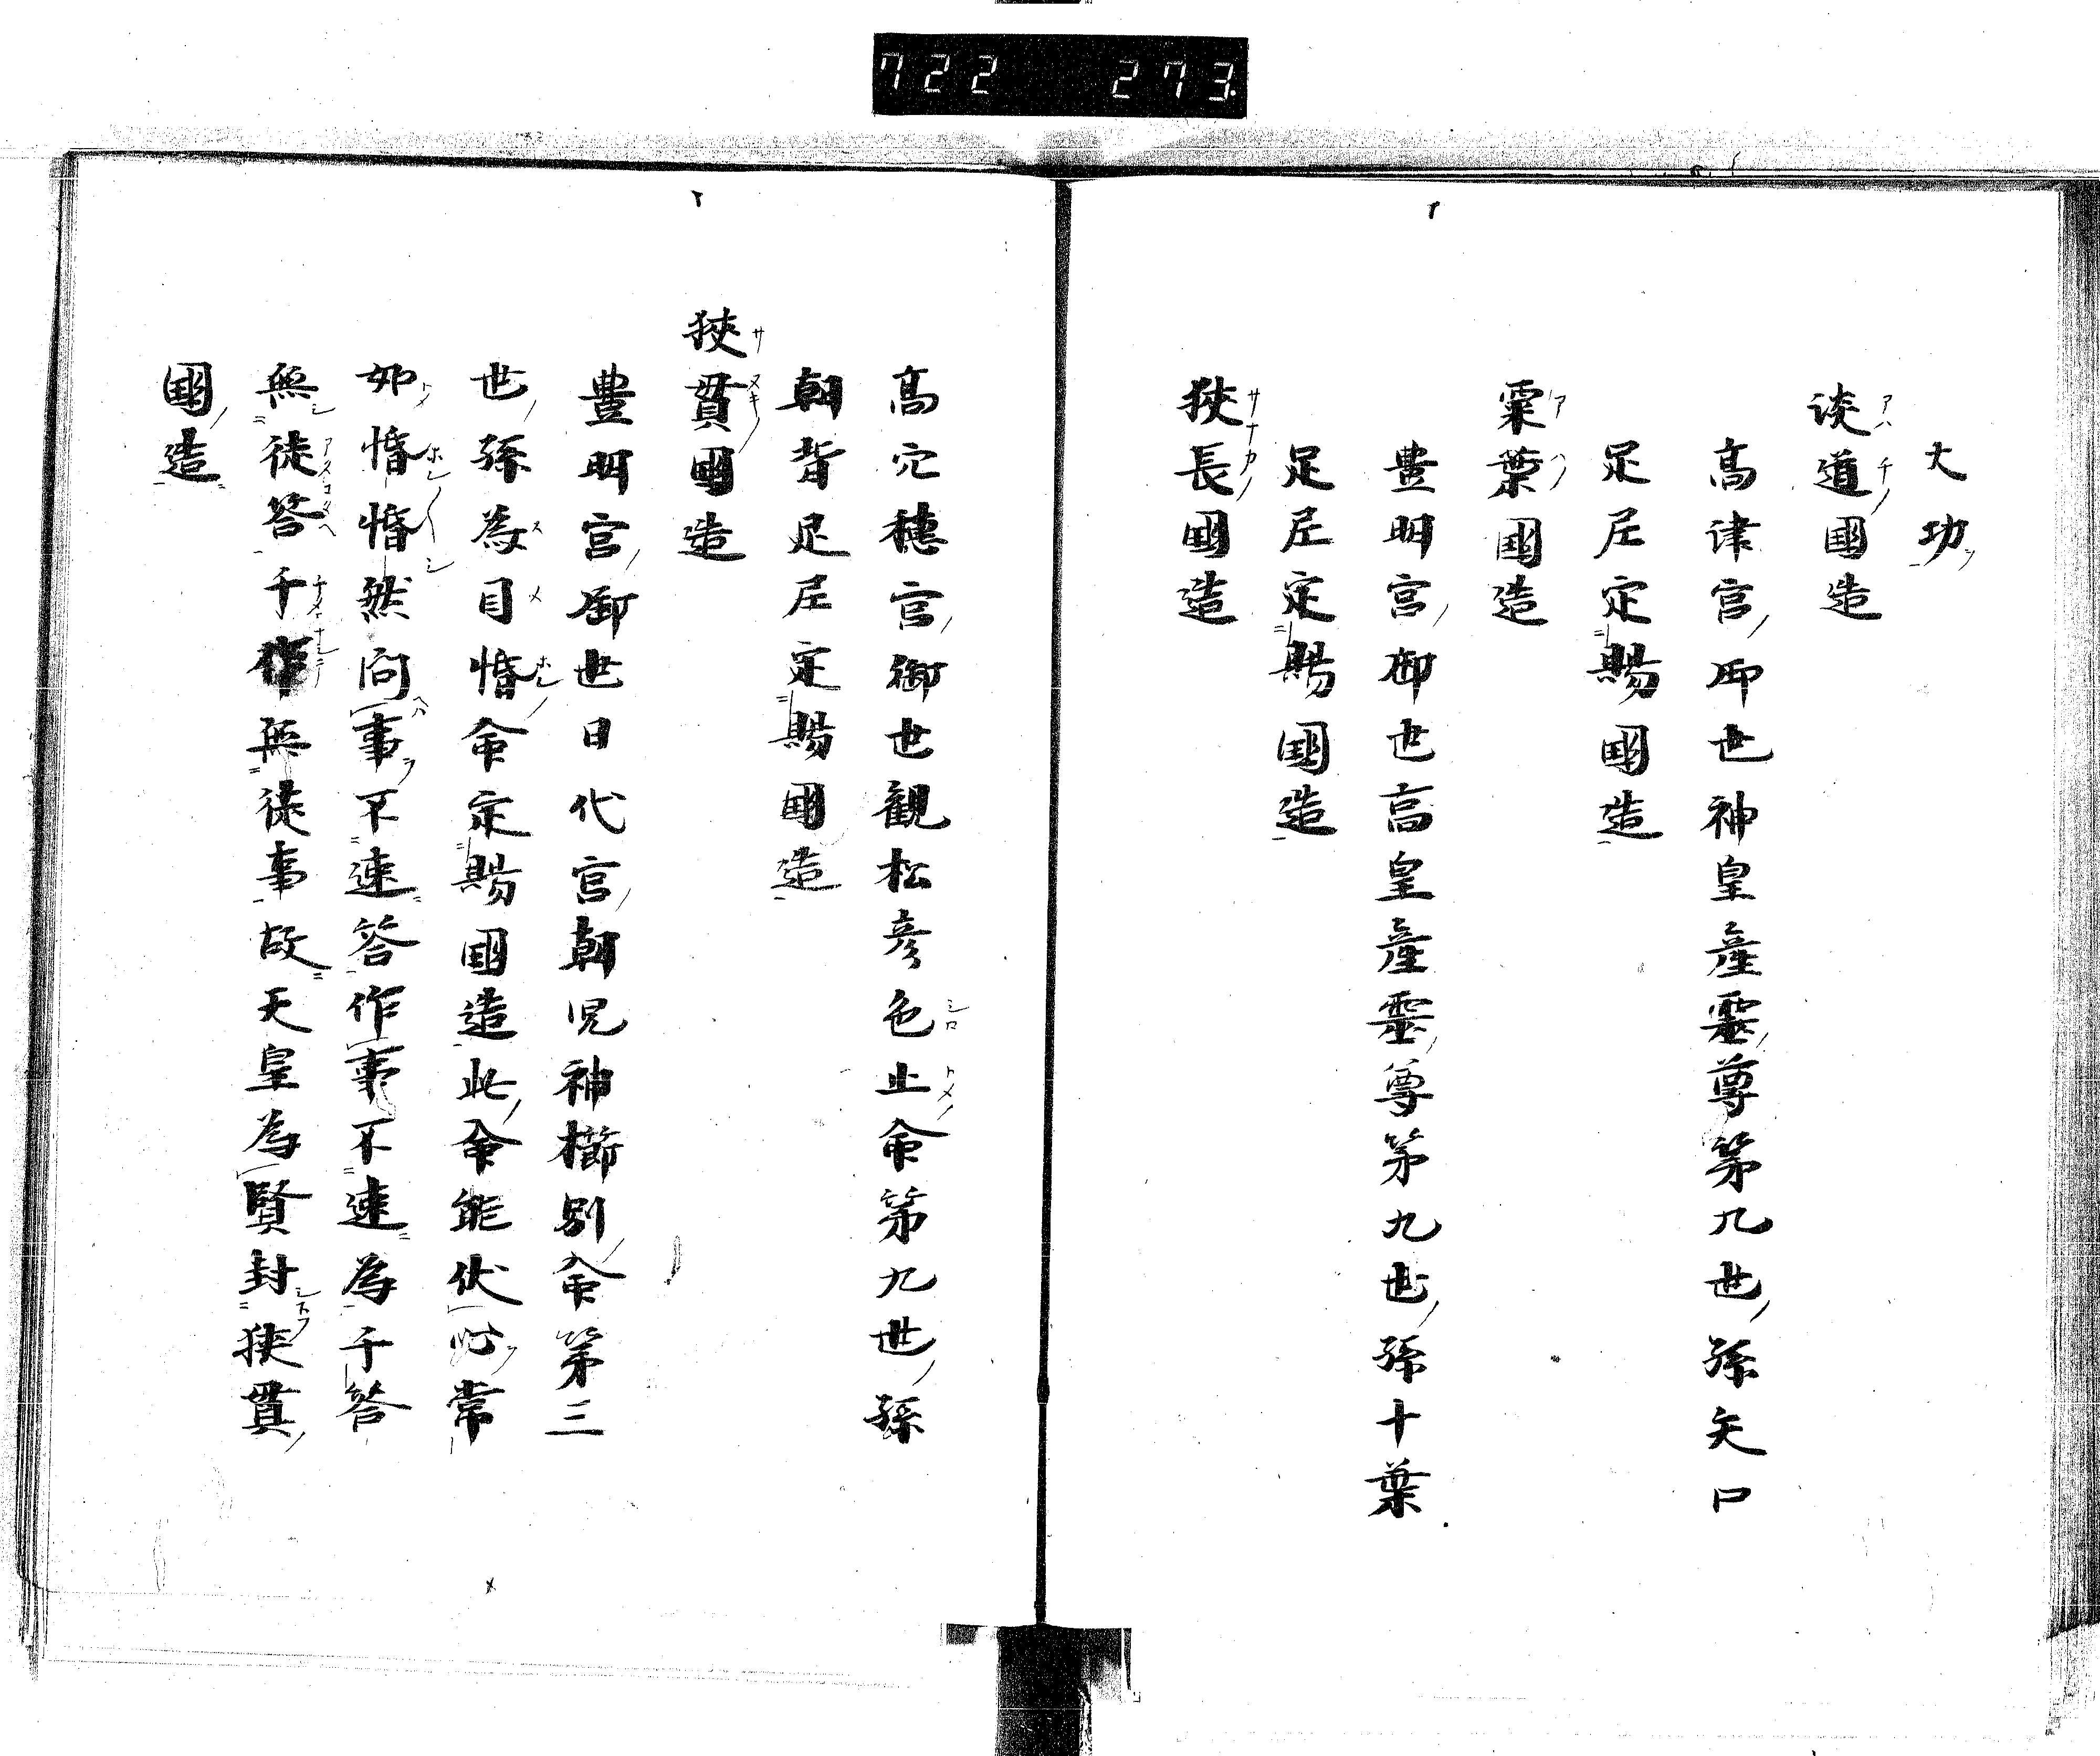 722 273
大功
淡道國造
高津宮御世神皇産靈尊第九世孫矢口
足尼定賜國造
粟葉國造
豊明宮御世高皇産靈尊第九世孫十葉
足尼定賜國造
狹長國造
高穴穂宮御世観松彦色止命第九世孫
朝背足尼定賜國造
狹貫國造
豊明宮御世日代宮朝児神櫛別命第三
世孫為目惛命定賜國造此命能伏心常
如惛惛然向事不速答作事不速為于答
無徒答于作無徒事故天皇為賢封狹貫
國造